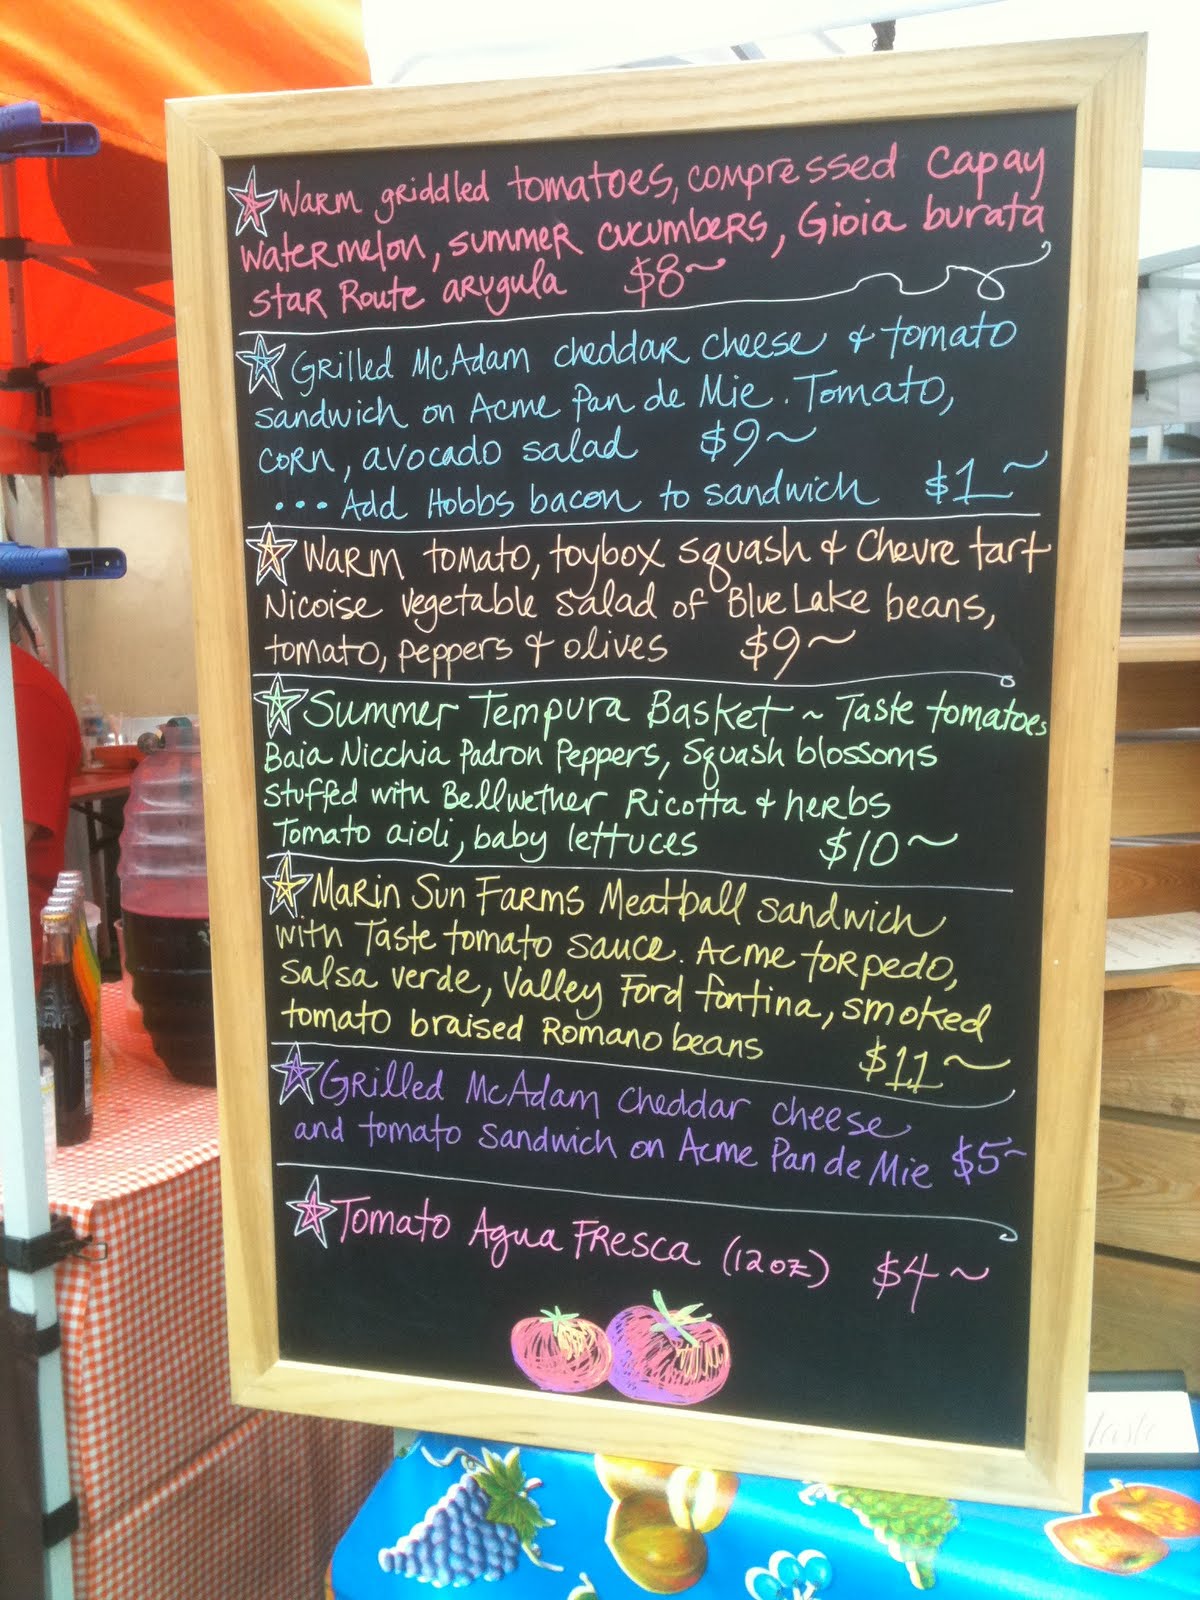 Warm griddled tomatoes, compressed Capay
watermelon, summer cucumbers, Gioia burata
Star Route arugula $8~
Grilled McAdam cheddar cheese & tomato
sandwich on Acme Pan de Mie. Tomato,
corn, avocado salad $9~
... Add Hobbs bacon to sandwich $1~
Warm tomato, toybox squash & Chevre tart
Nicoise vegetable salad of Blue Lake beans,
tomato, peppers & olives $9~
Summer Tempura Basket ~ Taste tomatoes
Baia Nicchia Padron Peppers, Squash blossoms
stuffed with Bellwether Ricotta & herbs
Tomato aioli, baby lettuces $10~
Marin Sun Farms Meatball sandwich
with Taste tomato sauce. Acme torpedo,
salsa verde, Valley Ford fontina, smoked
tomato braised Romano beans $11~
Grilled McAdam Cheddar cheese
and tomato Sandwich on Acme Pan de Mie $5~
Tomato Agua Fresca (12oz) $4~
taste